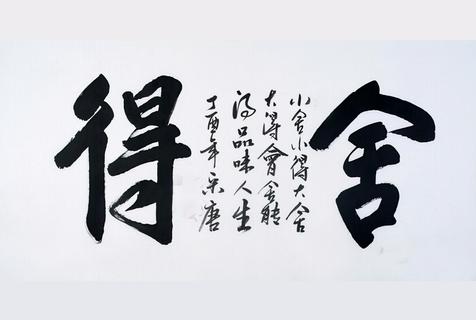 舍
小舍小得大舍
大得會舍能
得品味人生
丁酉年唐
得